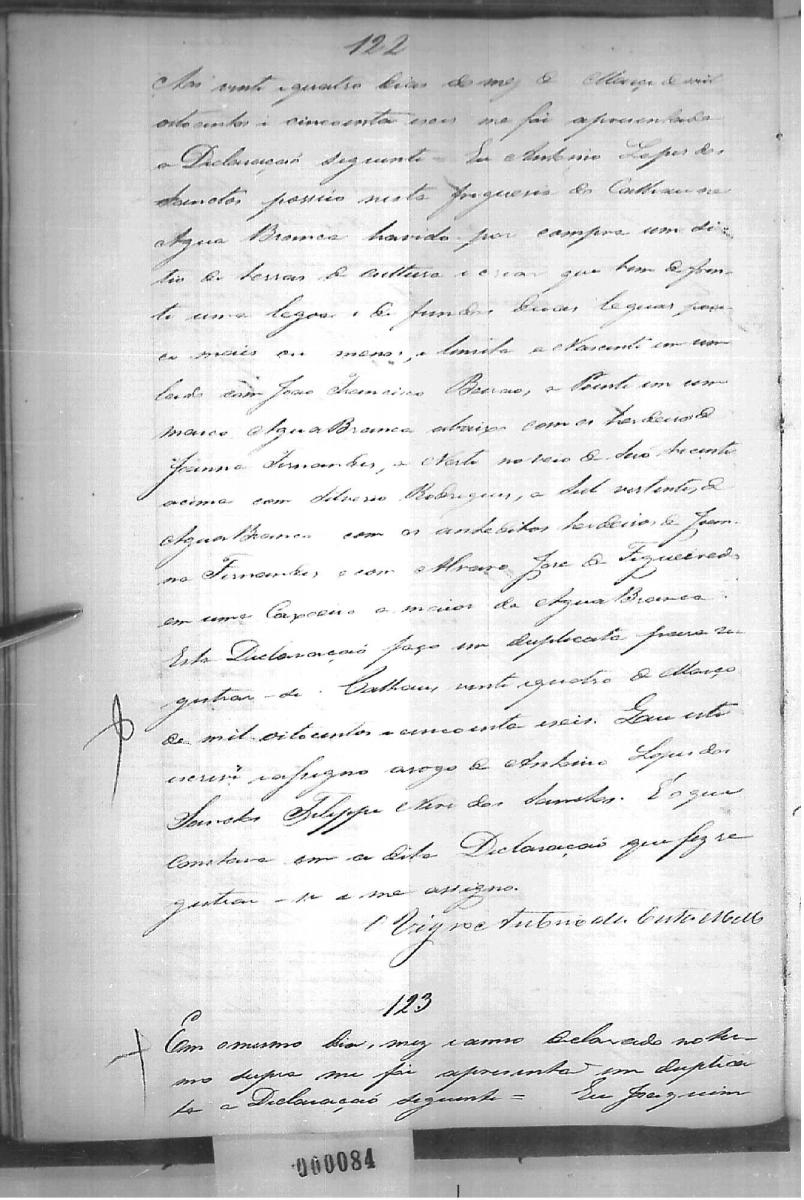 122
Aos vinte equatro dias do mez de Março de mil
oitocentos e cincoenta eseis me foi apresentada
a Declaração seguinte = Eu Antonio Lopes dos
Sanctos possúo nesta freguesia do Calháu na
Agua Branca havido por compra um si-
tio de terras de cultura e criar que tem de fren-
te uma legoa e de fundos duas leguas, pou-
co mais ou menos, e limita a Nascente em um
lado com João Francisco, a Poente em um
marco Agua Branca abaixo com os herdeiros de
Joanna Fernandes, a Norte no veio do
acima com Silverio Rodrigues, a Sul vertentes de
Agua Branca com os anteditos herdeiros de Joan-
na Fernandes e com Alvaro José de Figueiredo
em uma Caxoeira a maior da Agua Branca.
Esta Declaração faço em duplicata para re-
gistrar-se. Calháu, vinte equatro de Março
de mil oitocentos e cincoenta eseis. Que esta
escrevi e assigno arogo de Antonio Lopes dos
Sanctos Filippe Neri dos Sanctos. E o que
constava em a dita Declaração que fiz re
gistrar-se e me assigno.
O Vigro Antonio da Costa
123
Em omesmo dia, mez e anno declarado no ter-
mo supra me foi apresentá em duplica
ta a Declaração seguinte = Eu Joaquim
000084